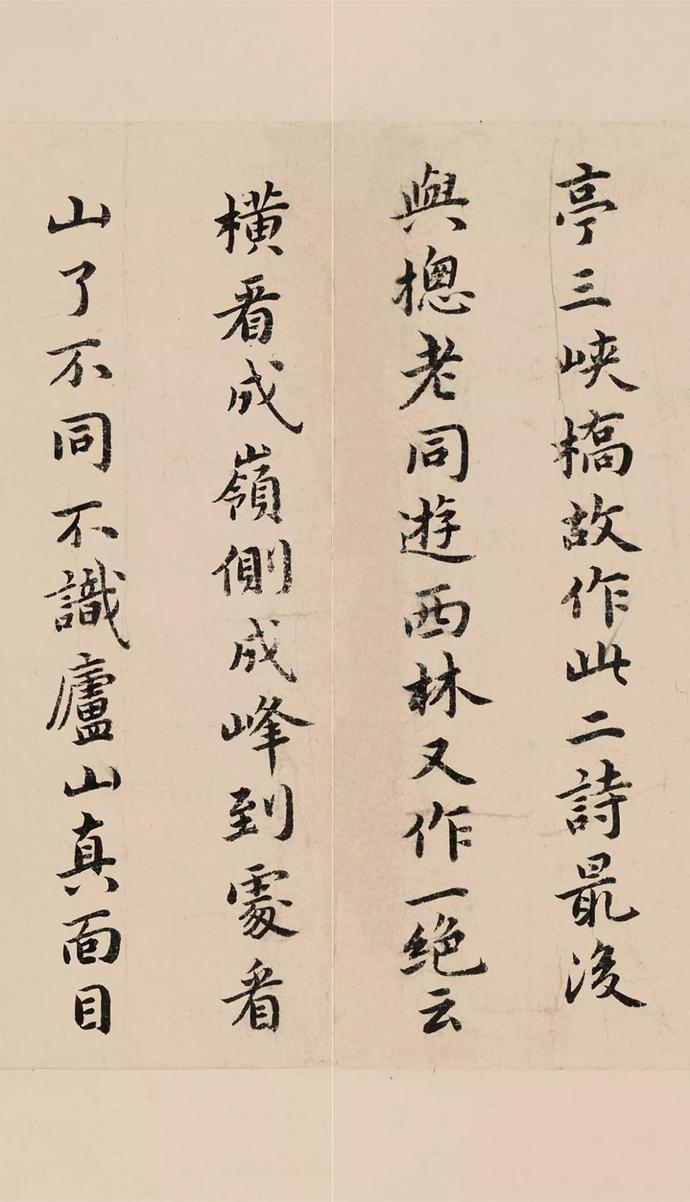 亭三峽橋故作此二詩最後
與摠老同遊西林又作一絕云
橫看成嶺側成峰到處看
山了不同不識廬山真面目